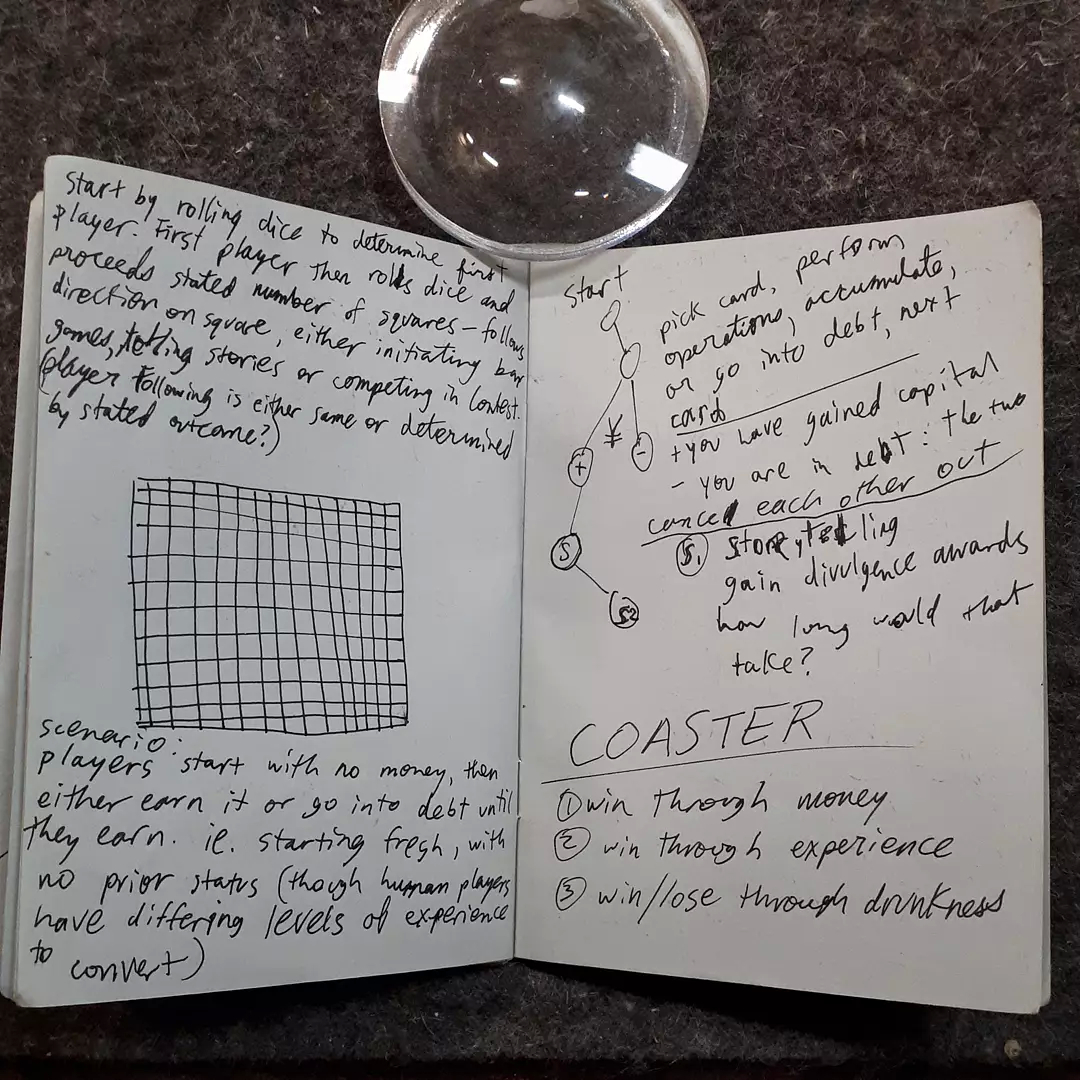 start by rolling dice to determine first
player. First player then rolls dice and
proceeds stated number of squares – follows
direction on square, either initiating bar
games, telling stories or competing in contest.
(player following is either same or determined
by stated outcome?)
scenario:
players start with no money, then
either earn it or go into debt until
they earn. ie. starting fresh, with
no prior status (though human players
have differing levels of experience
to convert)
start
¥
+
-
S
S2
pick card, perform
operations, accumulate,
or go into debt, next
card
+ you have gained capital
- you are in debt : the two
cancel each other out
S1 storytelling
gain divulgence awards
how long would that
take?
COASTER
① win through money
② win through experience
③ win/lose through drunkness